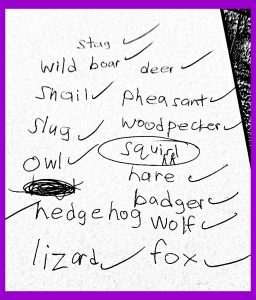 stag ✓
wild boar ✓ deer ✓
snail ✓ pheasant ✓
slug ✓ woodpecker ✓
owl ✓
hare ✓
badger ✓
✓ hedgehog wolf ✓
lizard ✓ fox ✓